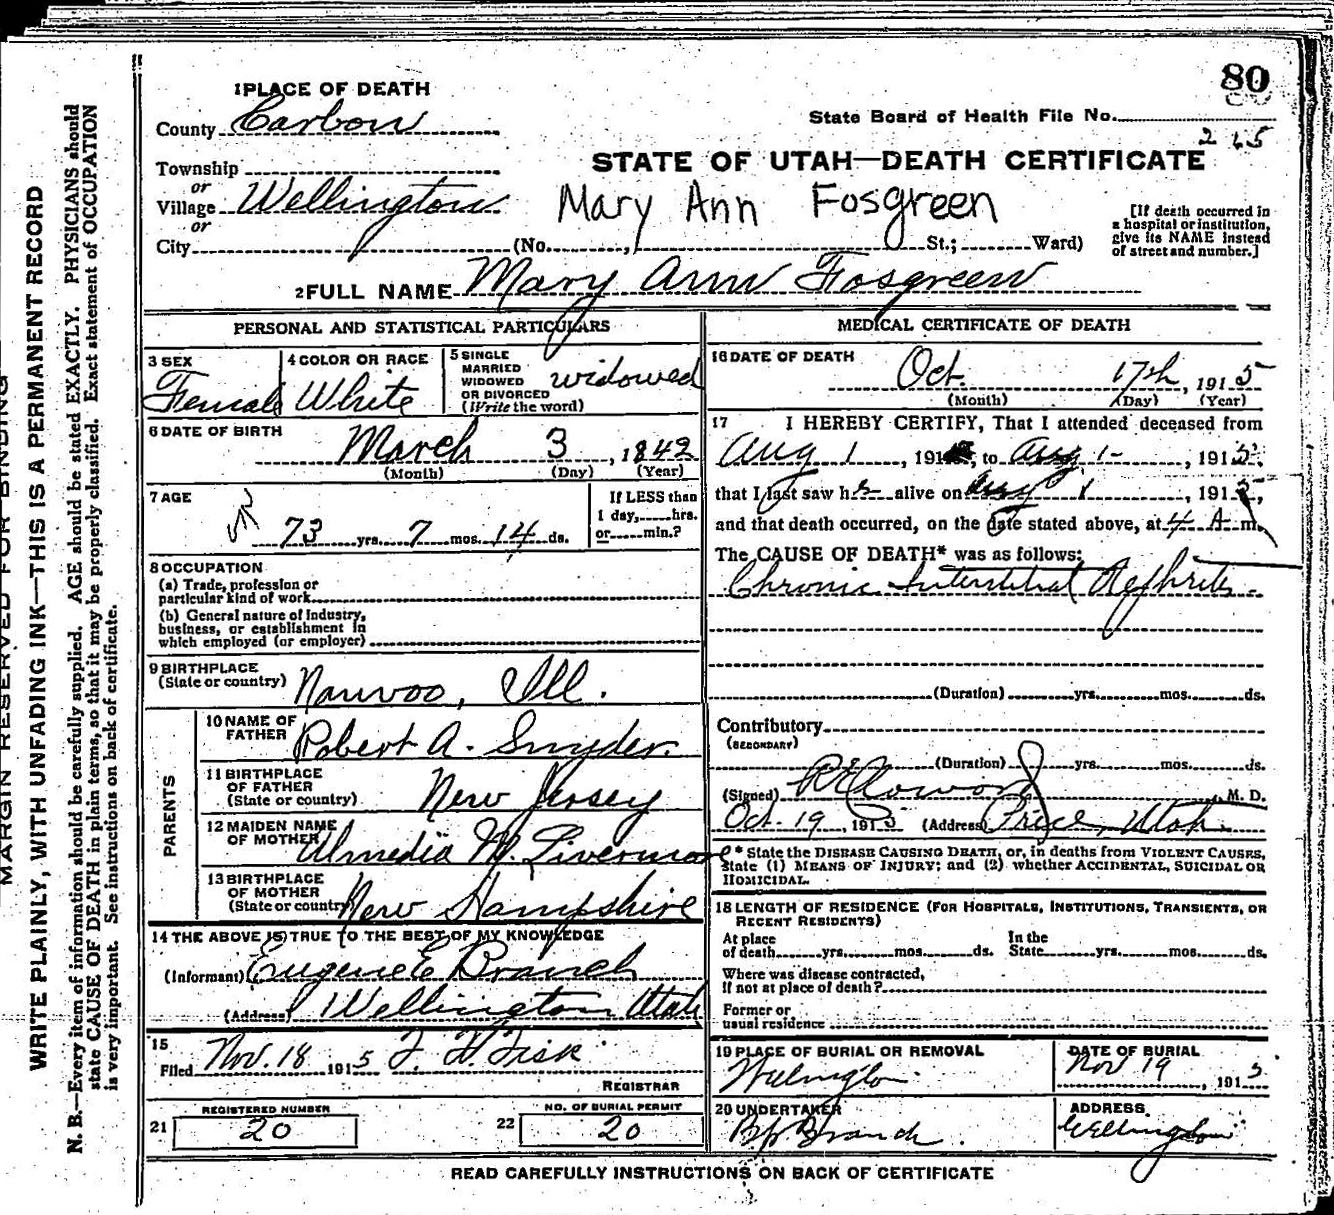 80
1 PLACE OF DEATH
County Carbon
State Board of Health File No.
265
Township
or
Village Wellington
or
City (No. , St.; Ward)
STATE OF UTAH—DEATH CERTIFICATE
Mary Ann Fosgreen
[If death occurred in
a hospital or institution,
give its NAME instead
of street and number.]
2 FULL NAME Mary Ann Fosgreen
PERSONAL AND STATISTICAL PARTICULARS
3 SEX
Female
4 COLOR OR RACE
White
5 SINGLE
MARRIED
WIDOWED
OR DIVORCED
(Write the word)
widowed
6 DATE OF BIRTH
March 3, 1842
(Month) (Day) (Year)
7 AGE
73 yrs. 7 mos. 14 ds.
If LESS than
1 day, hrs.
or min.?
8 OCCUPATION
(a) Trade, profession or
particular kind of work
(b) General nature of Industry,
business, or establishment in
which employed (or employer)
9 BIRTHPLACE
(State or country) Nauvoo, Ill.
PARENTS
10 NAME OF
FATHER Robert A. Snyder.
11 BIRTHPLACE
OF FATHER
(State or country) New Jersey
12 MAIDEN NAME
OF MOTHER Almedia M. Livermore
13 BIRTHPLACE
OF MOTHER
(State or country) New Hampshire
14 THE ABOVE IS TRUE TO THE BEST OF MY KNOWLEDGE
(Informant) Eugene E Branch
(Address) Wellington Utah
15
Filed Nov. 18 1915 F. W. Fisk
REGISTRAR
21 REGISTERED NUMBER
20
22 NO. OF BURIAL PERMIT
20
MEDICAL CERTIFICATE OF DEATH
16 DATE OF DEATH
Oct. 17th, 1915
(Month) (Day) (Year)
17 I HEREBY CERTIFY, That I attended deceased from
Aug 1, 191 , to Aug 1-, 1915,
that I last saw her alive on Aug 1, 1915,
and that death occurred, on the date stated above, at 4 A m.
The CAUSE OF DEATH* was as follows:
Chronic Interstitial Nephritis.
(Duration) yrs. mos. ds.
Contributory
(SECONDARY)
(Duration) yrs. mos. ds.
(Signed) M. D.
Oct. 19, 1915 (Address) Price, Utah.
* State the DISEASE CAUSING DEATH, or, in deaths from VIOLENT CAUSES,
state (1) MEANS OF INJURY; and (2) whether ACCIDENTAL, SUICIDAL OR
HOMICIDAL.
18 LENGTH OF RESIDENCE (FOR HOSPITALS, INSTITUTIONS, TRANSIENTS, OR
RECENT RESIDENTS)
At place
of death yrs. mos. ds.
In the
State yrs. mos. ds.
Where was disease contracted,
if not at place of death?
Former or
usual residence
19 PLACE OF BURIAL OR REMOVAL
Wellington
DATE OF BURIAL
Nov 19, 1915
20 UNDERTAKER
Branch.
ADDRESS
Wellington
READ CAREFULLY INSTRUCTIONS ON BACK OF CERTIFICATE
MARGIN RESERVED FOR BINDING
WRITE PLAINLY, WITH UNFADING INK—THIS IS A PERMANENT RECORD
N. B.—Every item of information should be carefully supplied. AGE should be stated EXACTLY. PHYSICIANS should
state CAUSE OF DEATH in plain terms, so that it may be properly classified. Exact statement of OCCUPATION
is very important. See instructions on back of certificate.